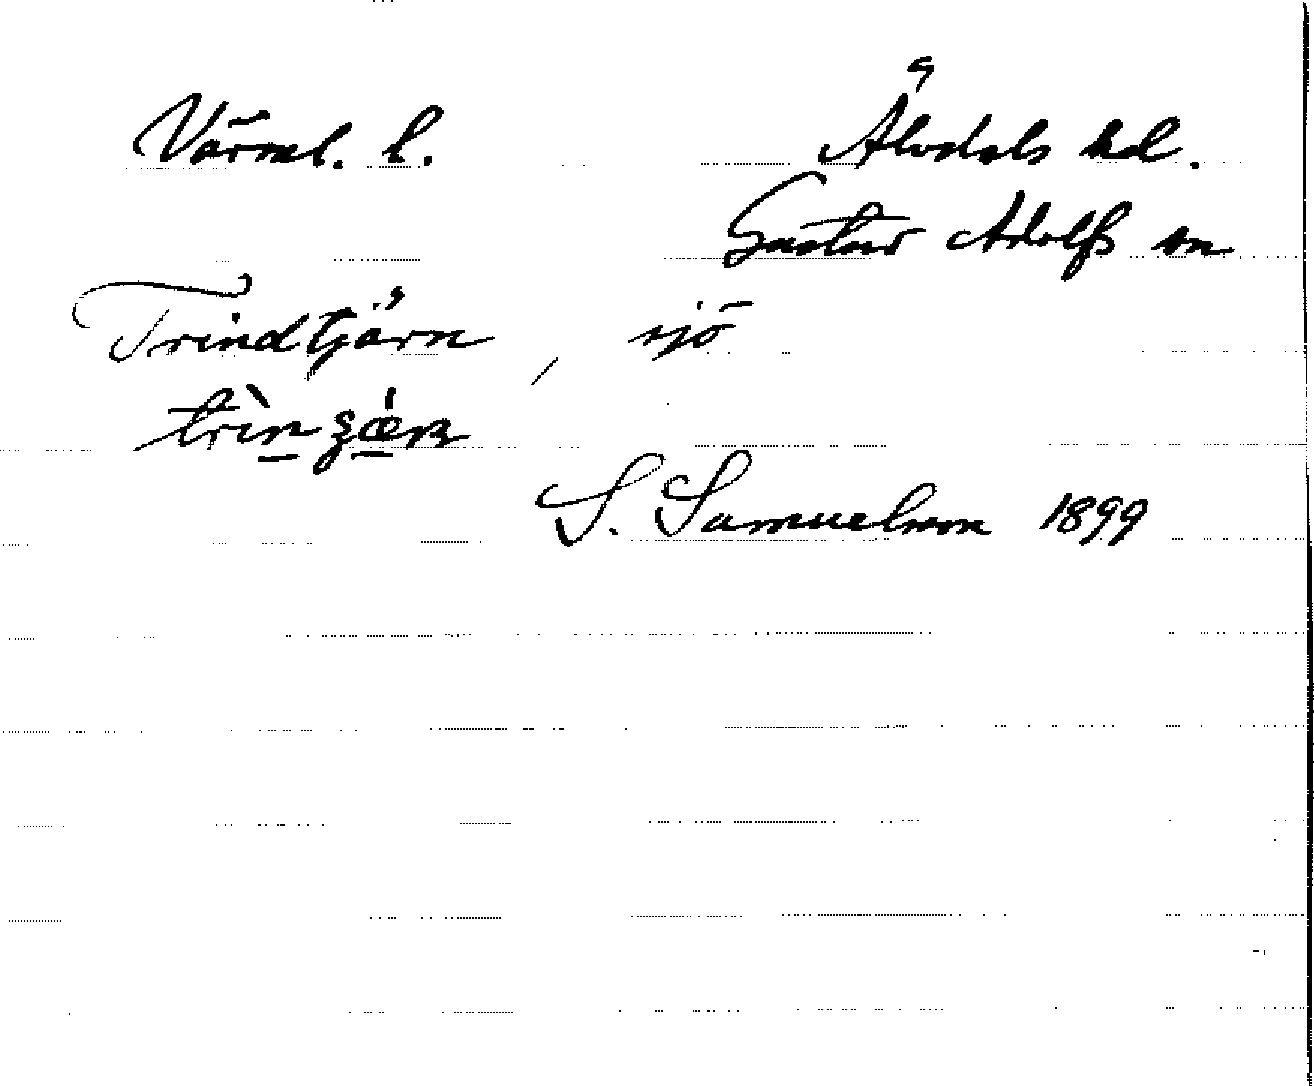 Värml. l. Älvdals hd.
Gustav Adolfs sn
Trindtjärn, sjö
S. Samuelsson 1899